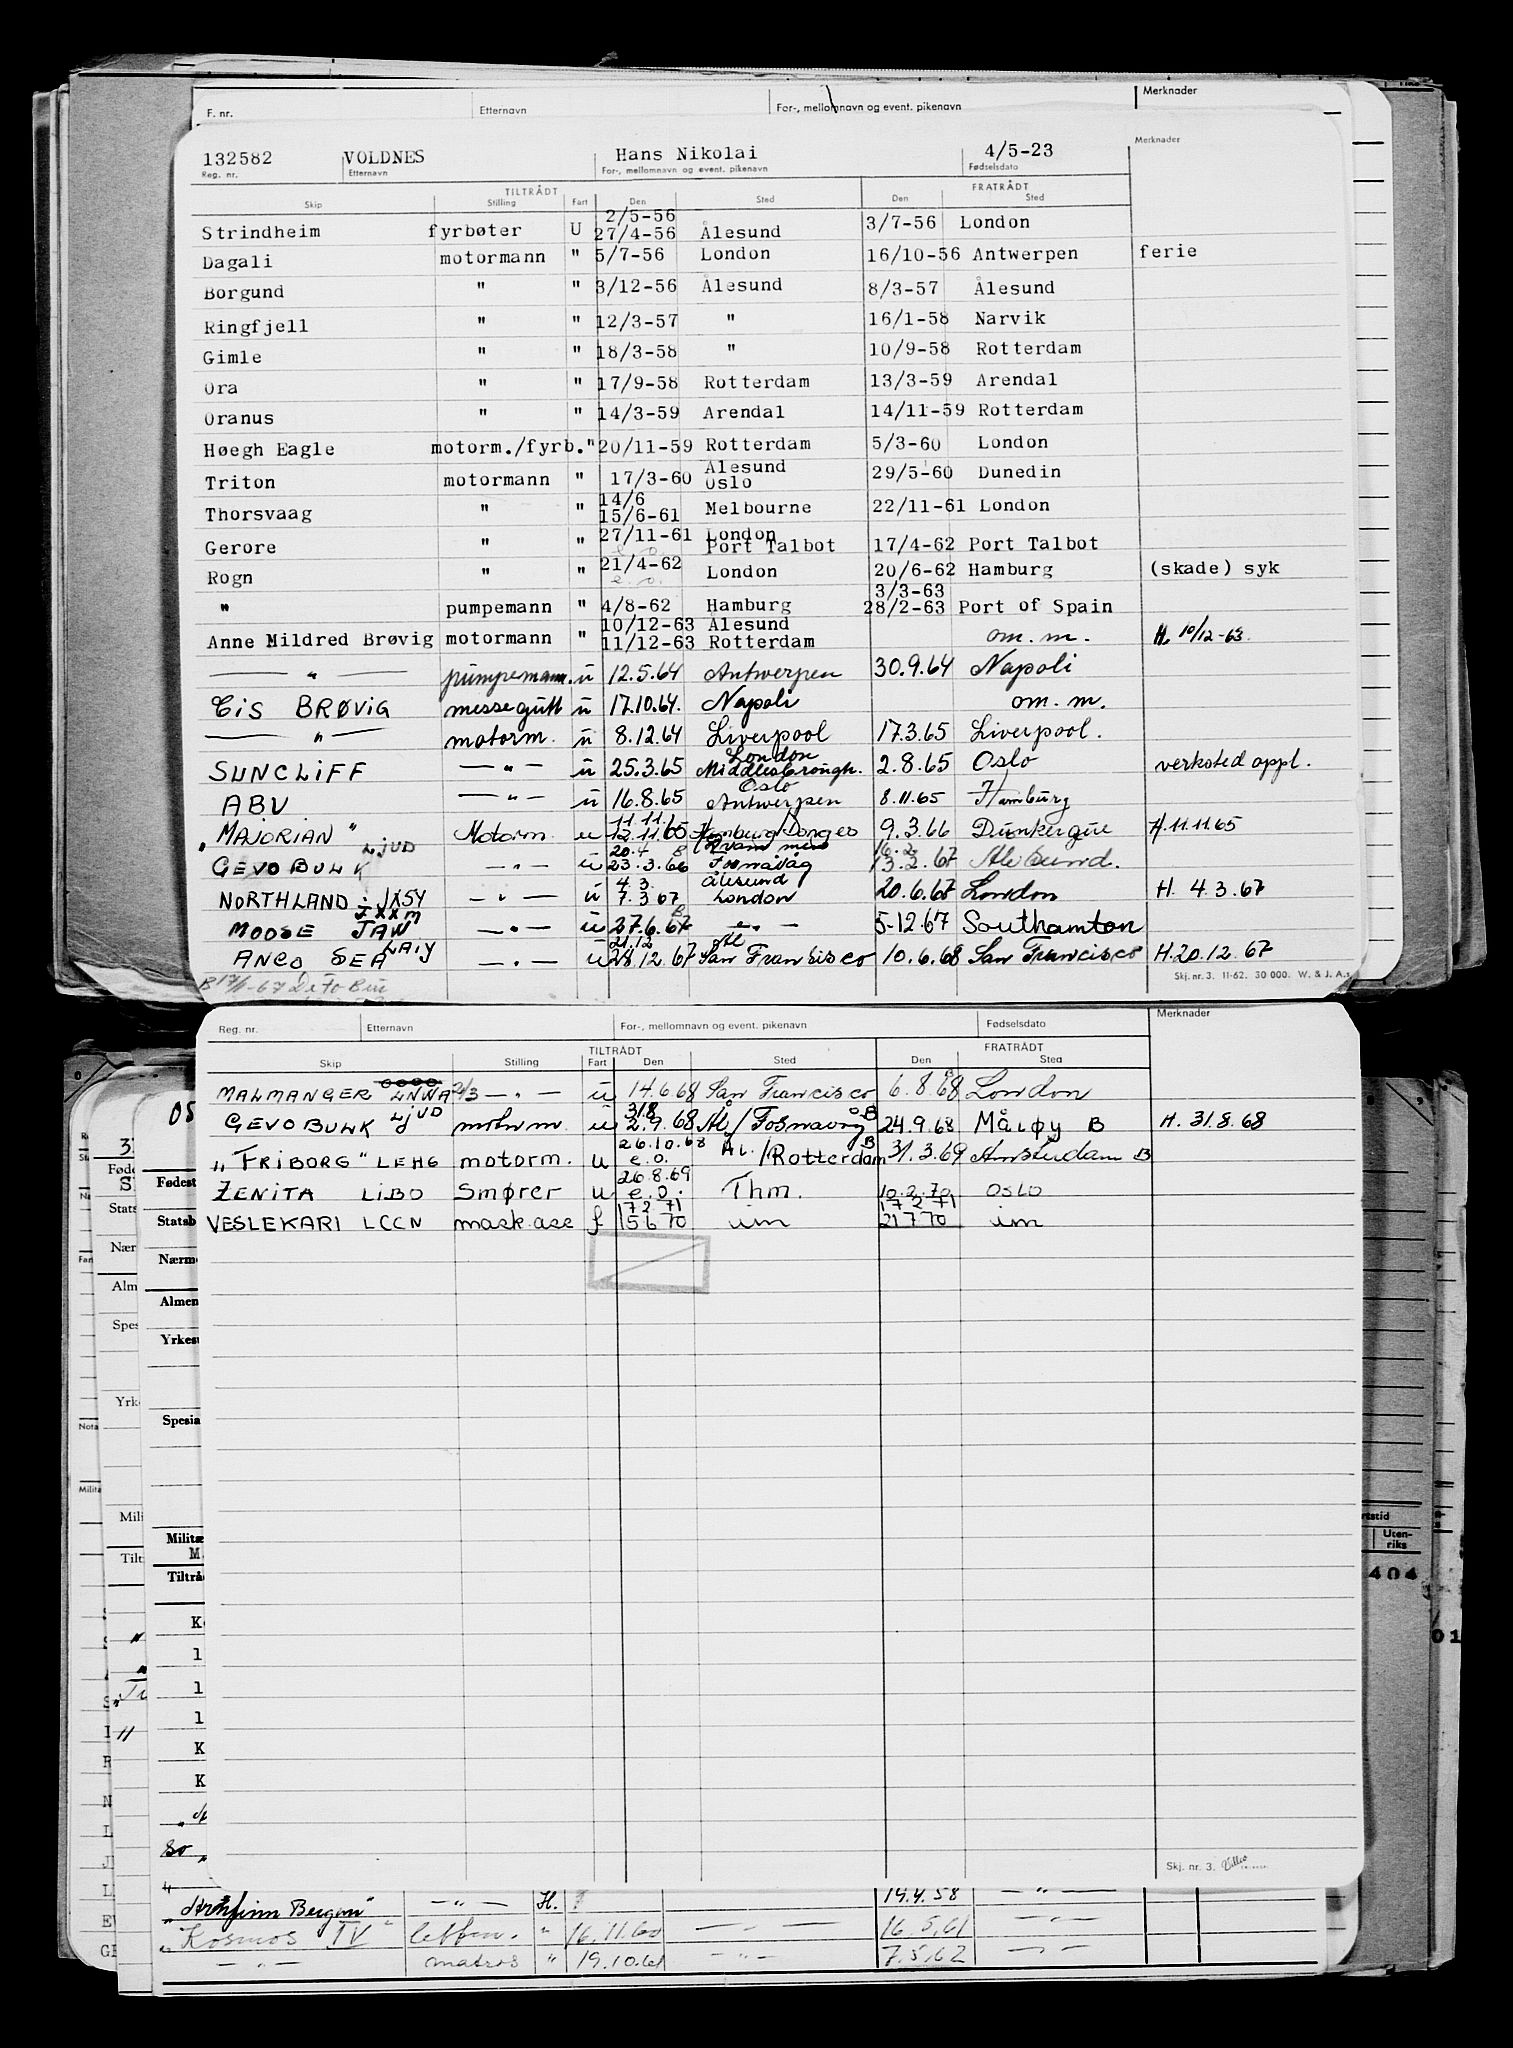 F. nr. Etternavn For-, mellomnavn og event. pikenavn Merknader
132582 VOLDNES Hans Nikolai 4/5-23 Merknader
Reg. nr. Etternavn For-, mellomnavn og event. pikenavn Fødselsdato
TILTRÅDT FRATRÅDT
Skip Stilling Fart Den Sted Den Sted
2/5-56
Strindheim fyrbøter U 27/4-56 Ålesund 3/7-56 London
Dagali motormann " 5/7-56 London 16/10-56 Antwerpen ferie
Borgund " " 3/12-56 Ålesund 8/3-57 Ålesund
Ringfjell " " 12/3-57 " 16/1-58 Narvik
Gimle " " 18/3-58 " 10/9-58 Rotterdam
Ora " " 17/9-58 Rotterdam 13/3-59 Arendal
Oranus " " 14/3-59 Arendal 14/11-59 Rotterdam
Høegh Eagle motorm./fyrb. " 20/11-59 Rotterdam 5/3-60 London
Ålesund
Triton motormann " 17/3-60 Oslo 29/5-60 Dunedin
14/6
Thorsvaag " " 15/6-61 Melbourne 22/11-61 London
27/11-61 London
Gerore " " e. o. Port Talbot 17/4-62 Port Talbot
21/4-62
Rogn " " e. o. London 20/6-62 Hamburg (skade) syk
3/3-63
" pumpemann " 4/8-62 Hamburg 28/2-63 Port of Spain
10/12-63 Ålesund
Anne Mildred Brøvig motormann " 11/12-63 Rotterdam om. m. H. 10/12-63.
— " — pumpemann. u 12.5.64 Antwerpen 30.9.64 Napoli
Cis BRØVIG messegutt u 17.10.64. Napoli om. m.
— " — motorm. u 8.12.64 Liverpool 17.3.65 Liverpool.
London
SUNCLIFF — " — u 25.3.65 Middlesbrough. 2.8.65 Oslo verksted oppl.
Oslo
ABU — " — u 16.8.65 Antwerpen 8.11.65 Hamburg
11.11.
"MAJORIAN" Motorm. u 12.11.65 Hamburg/Donges 9.3.66 Dunkerque H.11.11.65
LJUD 20.4 16.2.
GEVO BULK — " — u 23.3.66 Fosnavåg 13.2.67 Ålesund.
4.3. Ålesund
NORTHLAND : JXSY — " — u 7.3.67 London 20.6.67 London H. 4.3.67
JXXM
MOOSE JAW — " — u 27.6.67 — " — 5.12.67 Southamton
LAIY 21.12 Ål
ANCO SEA — " — u 28.12.67 San Francisco 10.6.68 San Francisco H.20.12.67
Skj. nr. 3. 11-62. 30 000. W. & J. A.s
Reg. nr. Etternavn For-, mellomnavn og event. pikenavn Fødselsdato Merknader
TILTRÅDT FRATRÅDT
Skip Stilling Fart Den Sted Den Sted
MALMANGER LNWA 2/3 — " — u 14.6.68 San Francisco 6.8.68 London
31.8
GEVO BULK LJUD motorm. u 2.9.68 Ål/Fosnavåg B 24.9.68 Måløy B H. 31.8.68
26.10.68
"FRIBORG" LEHG motorm. u e.o. ÅL./Rotterdam B 31.3.69 Amsterdam B
26.8.69
ZENITA LIBO Smører u e.o. Thm. 10.2.70 OSLO
17 2 71 17 2 71
VESLEKARI LCCN mask.ass f 15 6 70 im 21 7 70 im
Skj. nr. 3.
05
Føde
Fødest
Stats
Statsb
Nær
Nærm
Alm
Almen
Spes
Yrkesu
Yrke
Spesia
Mili
Militæ
M
Tilt
Tiltrå
Uten-
riks
404
01
"Arnfinn Bergan" — " — H. 19.4.58 — " —
"Kosmos IV" " 16.11.60 — " — 16.5.61 — " —
— " — matros " 19.10.61 — " — 7.5.62 — " —